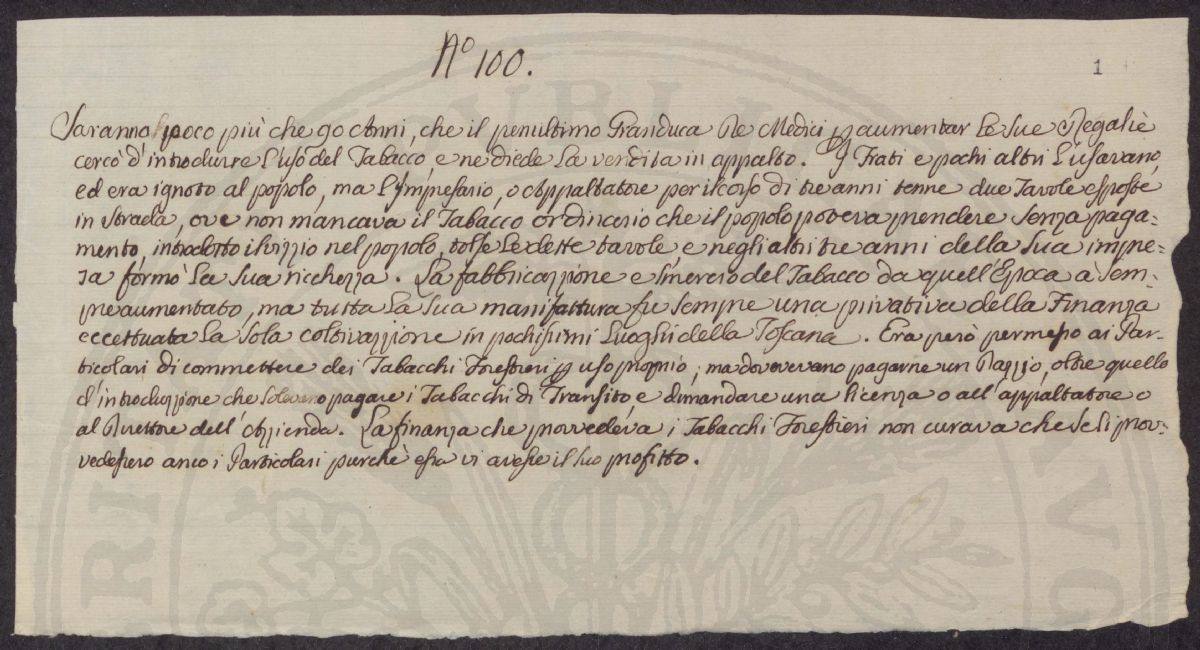 No 100.
1
Saranno poco più che 90 Anni, che il penultimo Granduca De Medici p aumentar le sue Regalie
cercò d'introdurre l'uso del Tabacco, e ne diede la vendita in appalto. I Frati e pochi altri l'usavano,
ed era ignoto al popolo, ma l'Impresario, o Appaltatore per il corso di tre anni tenne due Tavole esposte
in Strada, ove non mancava il Tabacco ordinario che il popolo poteva prendere senza paga-
mento, introdotto il vizzio nel popolo, tolse le dette tavole e negli altri tre anni della sua impre-
sa formò la sua ricchezza. La fabbricazzione e Smercio del Tabacco da quell'Epoca à sem-
pre aumentato, ma tutta la sua manifattura fu sempre una privativa della Finanza
eccettuata la sola coltivazzione in pochissimi Luoghi della Toscana. Era però permesso ai Par-
ticolari di commettere dei Tabacchi Forestieri p uso proprio; ma dovevano pagarne un Dazzio, oltre quello
d'introduzzione che solevano pagare i Tabacchi di Transito, e dimandare una licenza o all'appaltatore o
al Direttore dell'Azzienda. La finanza che provvedeva i Tabacchi Forestieri non curava che se li prov-
vedessero anco i Particolari purche essa vi avesse il suo profitto.